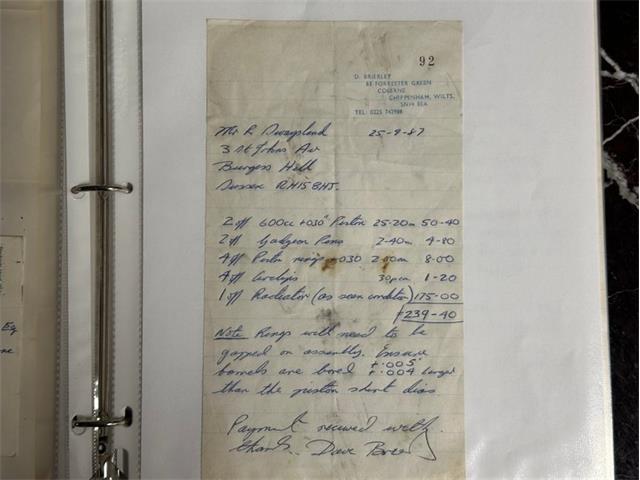 92
D. BRIERLEY
8E FORRESTER GREEN
COLERNE
CHIPPENHAM, WILTS.
SN14 8EA
TEL: 0225 742988
Mr R Swaysland 25-9-87
3 St Johns Av
Burgess Hill
Sussex RH15 8HJ.
2 off 600cc +030" Piston 25-20m 50-40
2 off Gudgeon Pins 2-40m 4-80
4 off Piston rings +030 2-00m 8-00
4 off circlips 30p 1-20
1 off Radiator (as seen condition) 175-00
239-40
Note Rings will need to be
gapped on assembly. Ensure
barrels are bored +.005
+.004 larger
than the piston skirt dias.
Payment received with
thanks. Dave
Eq
ne